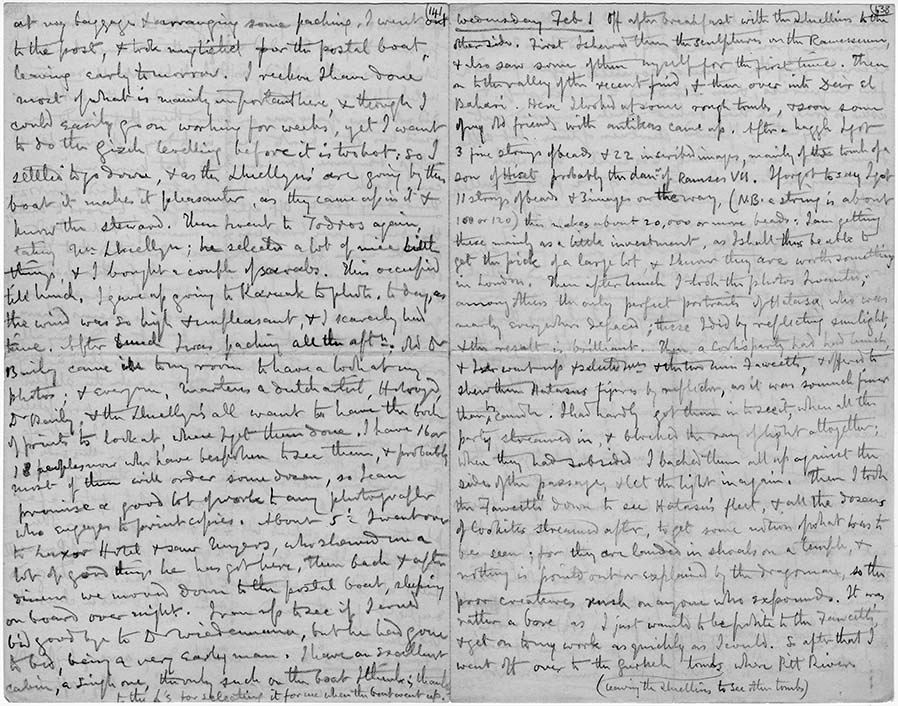 141
at my baggage & arranging some packing. I went out
to the post, & took my ticket for the postal boat
leaving early tomorrow. I reckon I have done
most of what is mainly important here, & though I
could easily go on working for weeks, yet I want
to do the Gizeh levelling before it is too hot: so I
settled to go down, & as the Lluellyns are going by this
boat it makes it pleasanter, as they came up in it &
know the steward. Then I went to Todros again,
taking Mr Lluellyn; he selected a lot of nice little
things, & I bought a couple of scarabs. This occupied
till lunch. I gave up going to Karnak to photo. to day, as
the wind was so high & unpleasant, & I scarcely had
time. After lunch I was packing all the aftn. Old Dr
Baily came to my room to have a look at my
photos; & everyone, a dutch artist, Holroyd,
Dr Baily, & the Lluellyns all want to have the book
of prints to look at, when I get them done. I have 16 or
18 people now who have bespoken to see them, & probably
most of them will order some dozen, so I can
promise a good lot of work to any photografer
who engages to print copies. About 5½ I went over
to Luxor Hotel & saw Myers, who shewed me a
lot of good things he has got here, then back & after
dinner we moved down to the postal boat, sleeping
on board over night. I ran up to see if I could
bid good bye to Dr Wiedemann, but he had gone
to bed, being a very early man. I have an excellent
cabin, a single one, the only such on the boat I think; thanks
to the Ls for selecting it for me when the boat went up.
638
Wednesday Feb 1 Off after breakfast with the Lluellins to the
other side. First I shewed them the sculptures on the Ramesseum,
& also saw some of them myself for the first time. Then
on to the valley of the recent find, & then over into Deir el
Bahari. Here I looked at some rough tombs, & soon some
of my old friends with antikas came up. After a higgle I got
3 fine strings of beads & 22 inscribed images, mainly of the tomb of a
son of probably the daur of Ramses VII. I forgot to say I got
11 strings of beads & 3 images on the way, (NB. a string is about
100 or 120) this makes about 20,000 or more beads. I am getting
these mainly as a little investment as I shall thus be able to
get the pick of a large lot & I know they are worth something
in London. Then after lunch I took the photos I wanted;
among others the only perfect portraits of Hatasu, who was
nearly everywhere defaced; these I did by reflecting sunlight,
& the result is brilliant. Then a Cooks party had had lunch,
& I went up & saluted & the two Fawcetts, & offered to
shew them Hatasu's figures by reflector, as it was so much finer
than candle. I had hardly got them in to see it when all the
party streamed in, & blocked the ray of light altogether;
when they had subsided I backed them all up against the
sides of the passage, & let the light in again. Then I took
the Fawcetts down to see Hatasu's fleet, & all the dozens
of Cookites streamed after, to get some notion of what was to
be seen: for they are landed in shoals on a temple, &
nothing is pointed out or explained by the dragoman, so the
poor creatures rush on anyone who expounds. It was
rather a bore as I just wanted to be polite to the Fawcetts
& get on to my work as quickly as I could. So after that I
went off over to the Gurneh tombs where Pitt Rivers
(leaving the Lluellins to see other tombs)